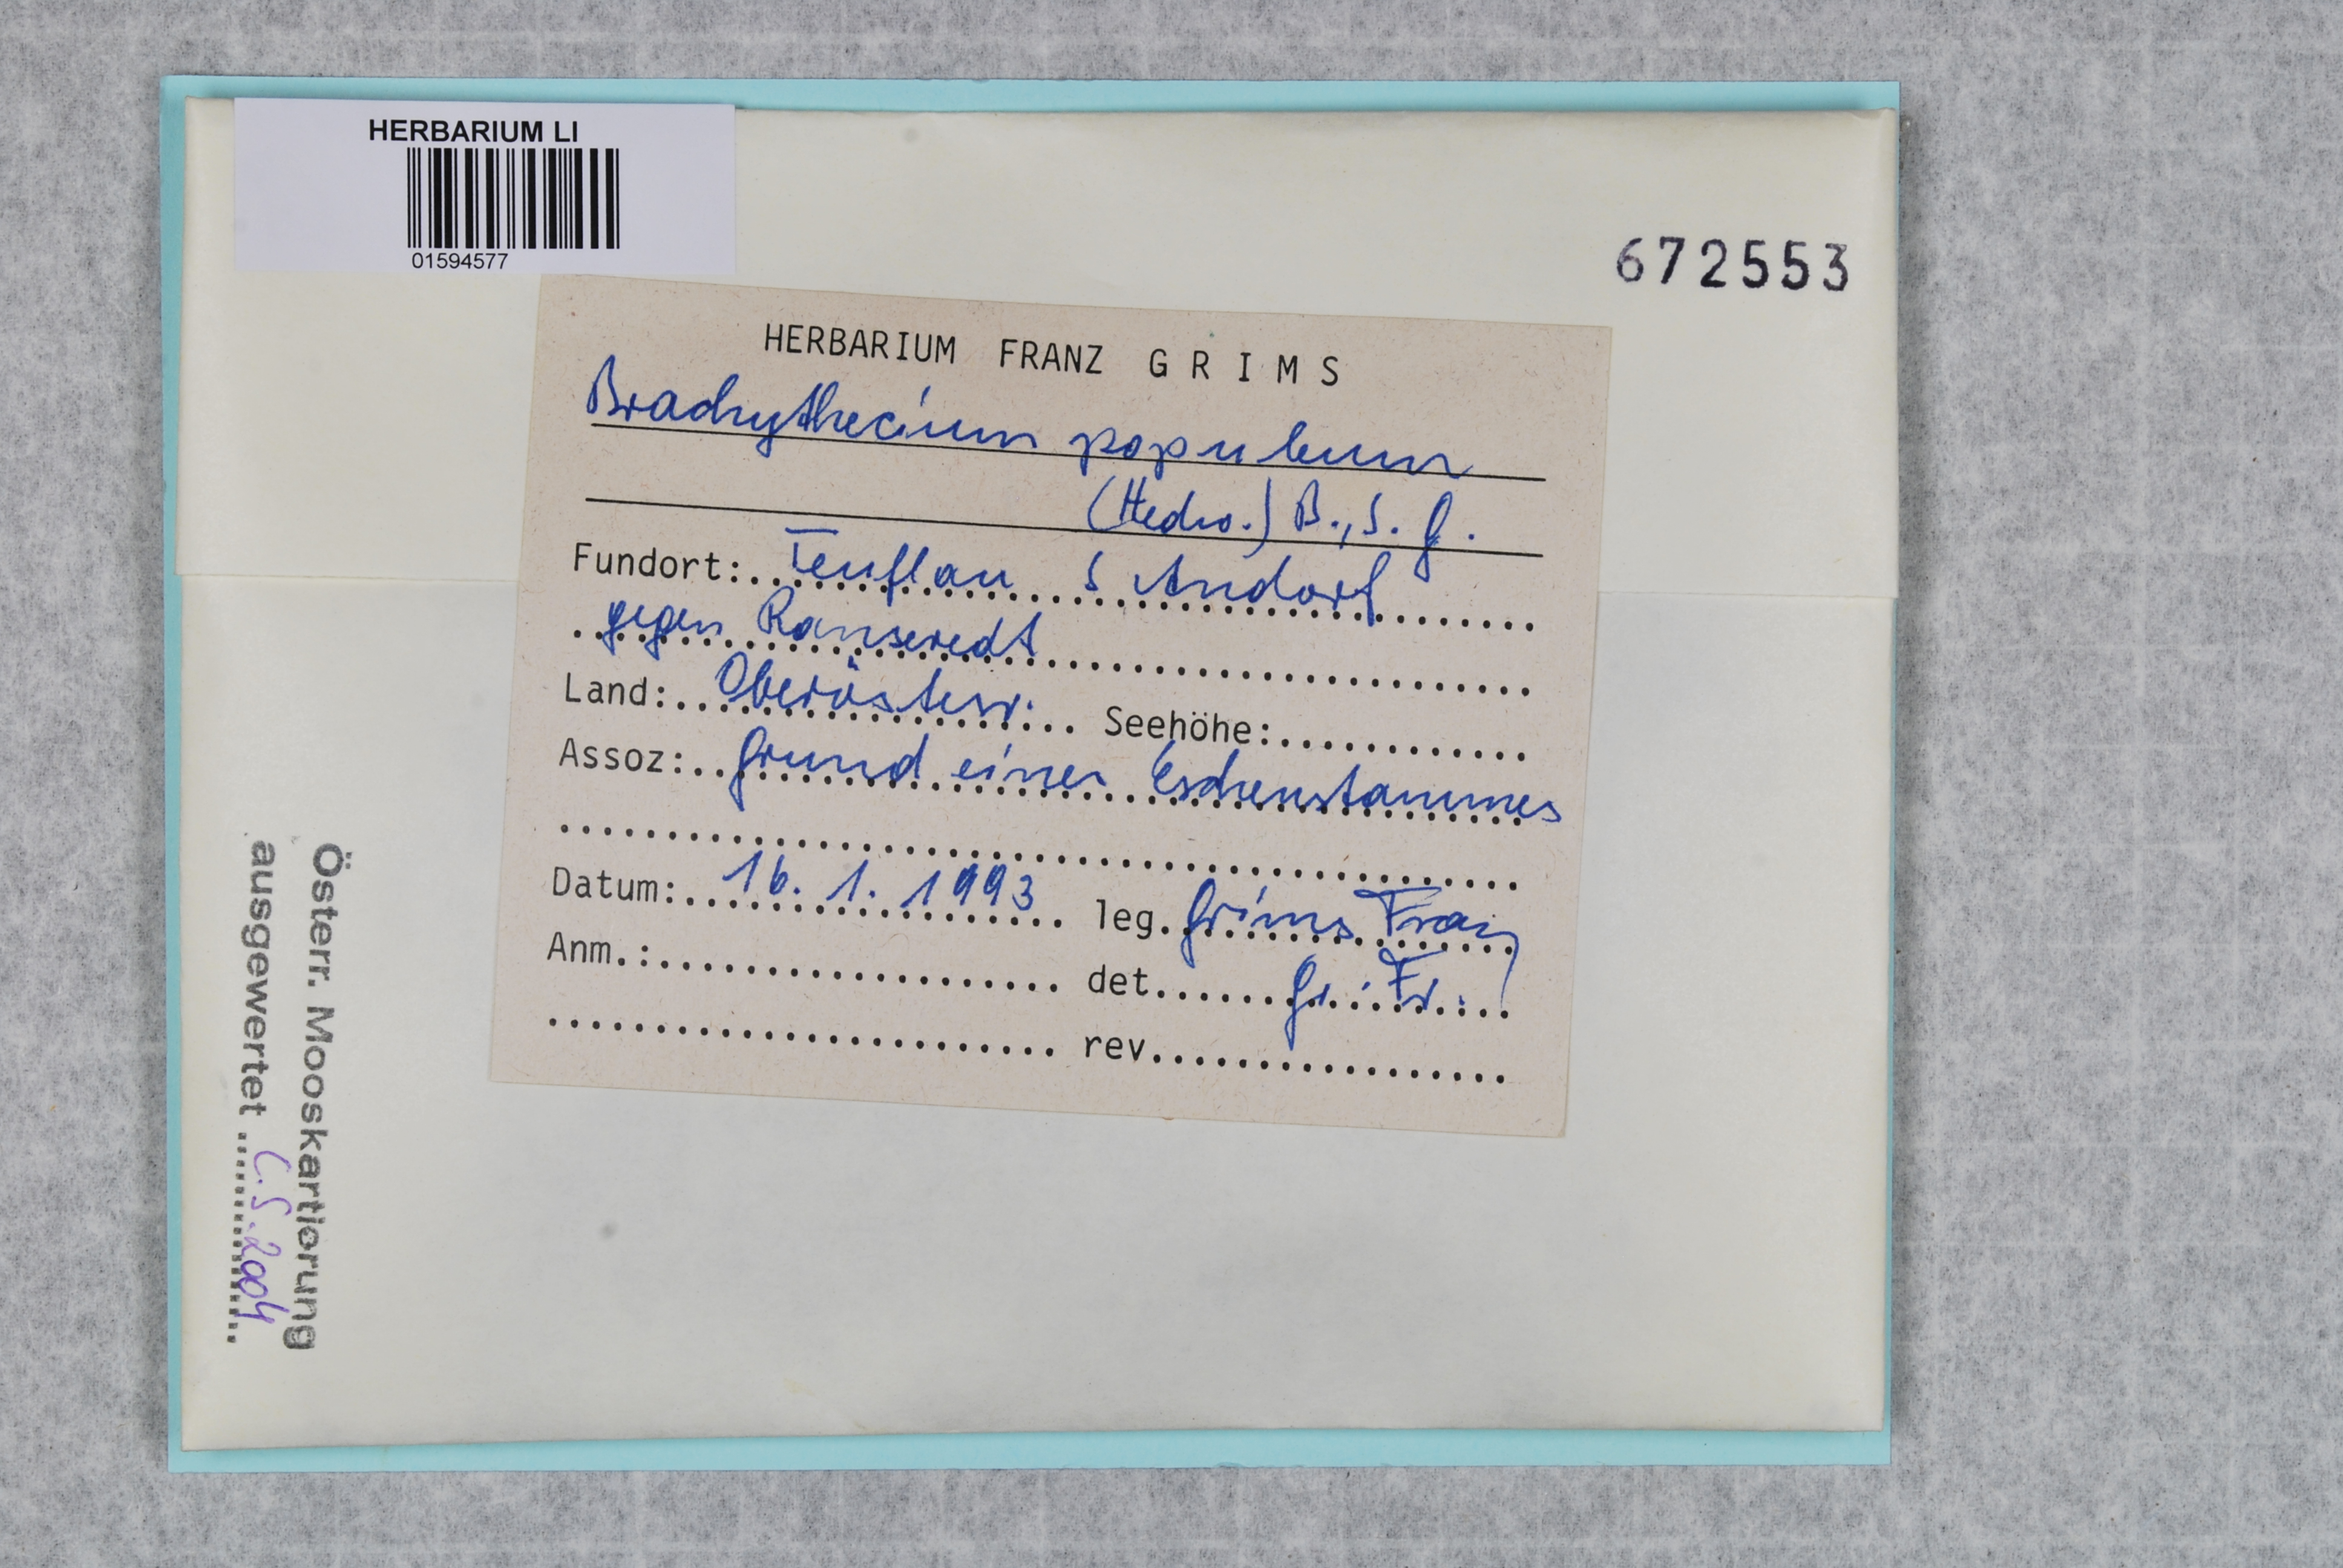 HERBARIUM LI
01594577
672553
HERBARIUM FRANZ GRIMS
Brachythecium populeum
(Hedw.) B., S. G.
Fundort: Teuflau S Andorf
gegen Ranseredt
Land: Oberösterr. Seehöhe:
Assoz: Grund eines Eschenstammes
Datum: 16. 1. 1993 leg. Grims Franz
Anm.: det. Gr. Fr.
rev.
Österr. Mooskartierung
ausgewertet C.S. 2004